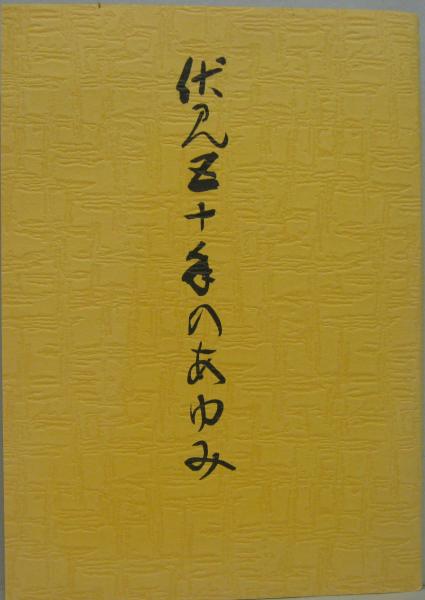 伏見五十年のあゆみ